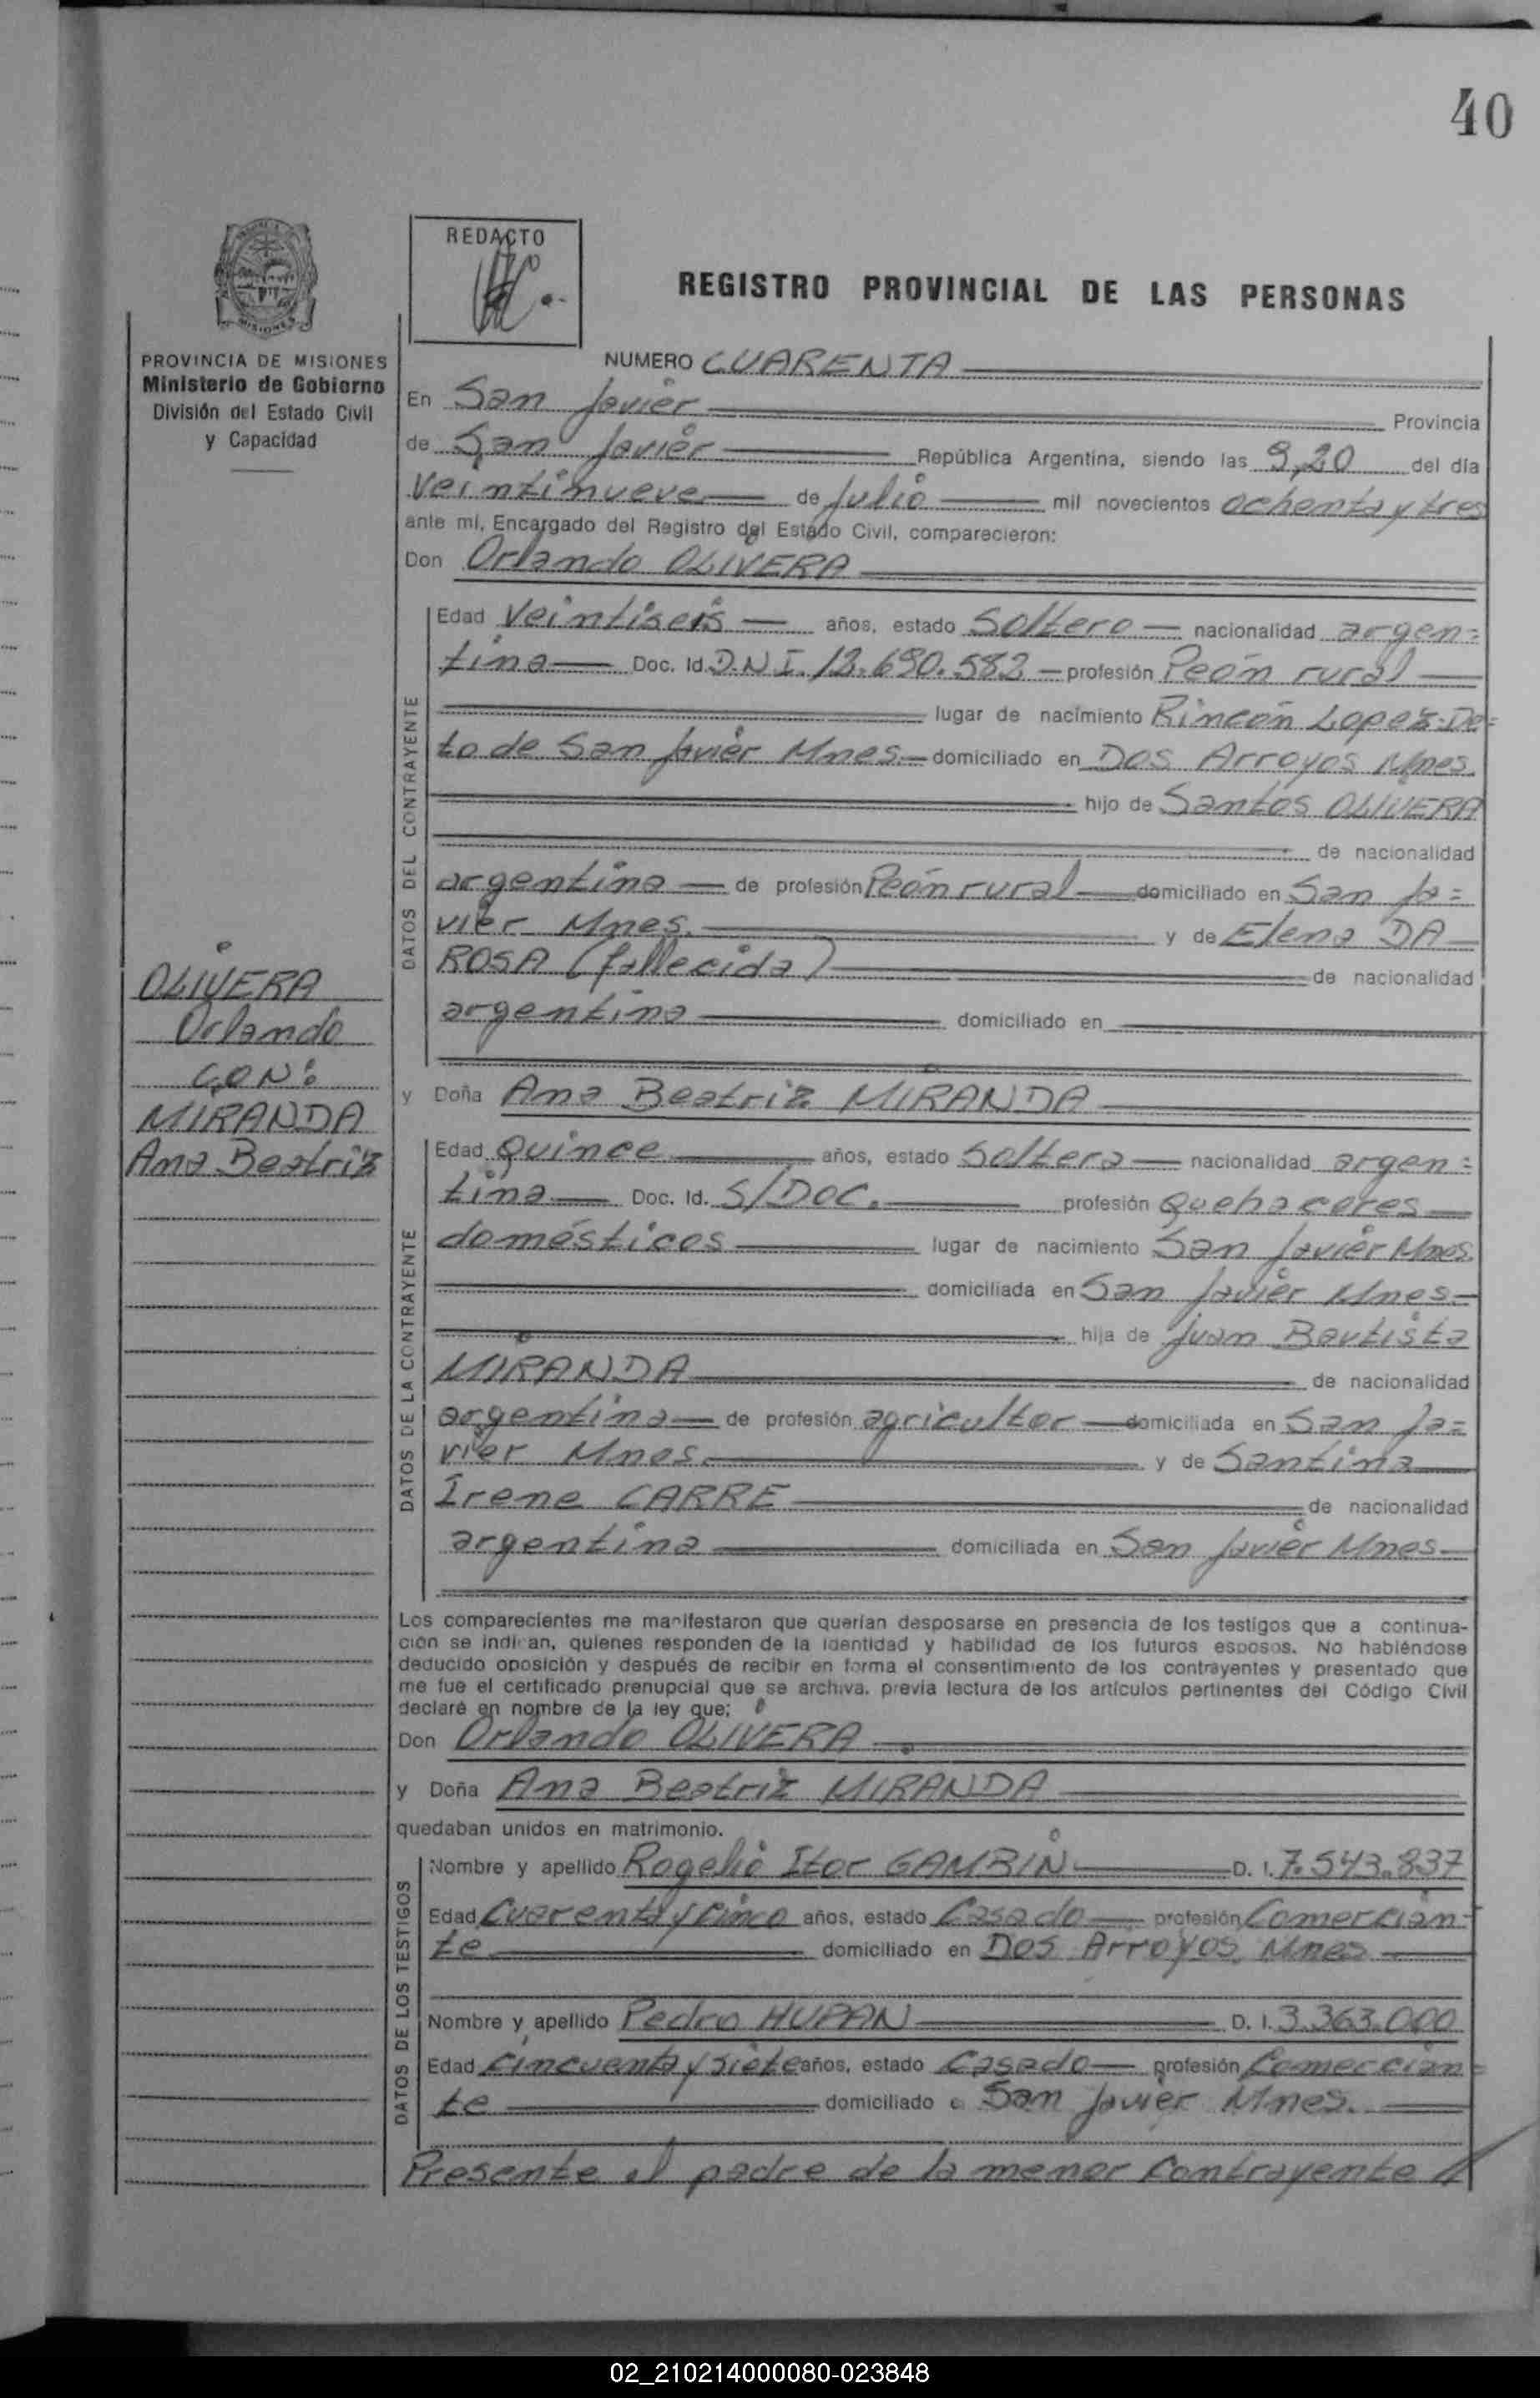 40
REDACTO
REGISTRO PROVINCIAL DE LAS PERSONAS
MISIONES
PROVINCIA DE MISIONES
Ministerio de Gobierno
División del Estado Civil
y Capacidad
NUMERO CUARENTA
En San Javier Provincia
de San Javier República Argentina, siendo las 9,20 del día
Veintinueve de Julio mil novecientos ochenta y tres
ante mí, Encargado del Registro del Estado Civil, comparecieron:
Don Orlando OLIVERA
DATOS DEL CONTRAYENTE
Edad Veintiseis años, estado Soltero nacionalidad argen=
tina Doc. Id. D.N.I. 12.690.582 profesión Peón rural
lugar de nacimiento Rincón Lopez-De=
to de San Javier Mnes. domiciliado en Dos Arroyos Mnes.
hijo de Santos OLIVERA
de nacionalidad
argentina de profesión Peón rural domiciliado en San Ja=
vier Mnes. y de Elena DA
ROSA (fallecida) de nacionalidad
argentina domiciliado en
OLIVERA
Orlando
CON:
MIRANDA
Ana Beatriz
y Doña Ana Beatriz MIRANDA
DATOS DE LA CONTRAYENTE
Edad Quince años, estado Soltera nacionalidad argen=
tina Doc. Id. S/DOC. profesión Quehaceres
domésticos lugar de nacimiento San Javier Mnes.
domiciliada en San Javier Mnes.
hija de Juan Bautista
MIRANDA de nacionalidad
argentina de profesión agricultor domiciliada en San Ja=
vier Mnes. y de Santina
Irene CARRE de nacionalidad
argentina domiciliada en San Javier Mnes.
Los comparecientes me manifestaron que querían desposarse en presencia de los testigos que a continua-
ción se indican, quienes responden de la identidad y habilidad de los futuros esposos. No habiéndose
deducido oposición y después de recibir en forma el consentimiento de los contrayentes y presentado que
me fue el certificado prenupcial que se archiva, previa lectura de los artículos pertinentes del Código Civil
declaré en nombre de la ley que:
Don Orlando OLIVERA
y Doña Ana Beatriz MIRANDA
quedaban unidos en matrimonio.
DATOS DE LOS TESTIGOS
Nombre y apellido Rogelio Itor GAMBIN D. I. 7.543.837
Edad Cuarenta y cinco años, estado Casado profesión Comercian=
te domiciliado en Dos Arroyos Mnes
Nombre y apellido Pedro HUPAN D. I. 3.363.000
Edad Cincuenta y siete años, estado Casado profesión Comercian=
te domiciliado e San Javier Mnes.
Presente el padre de la menor Contrayente //
02_210214000080-023848